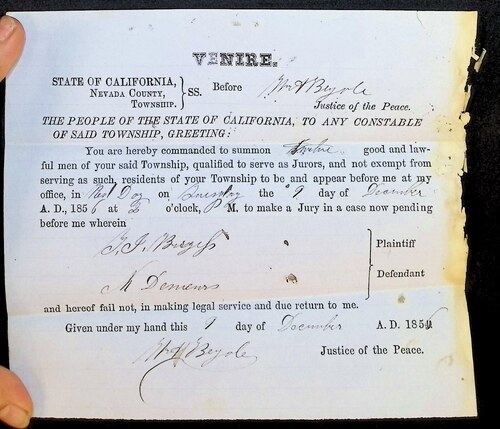 VENIRE.
STATE OF CALIFORNIA,
NEVADA COUNTY, SS. Before
TOWNSHIP. Justice of the Peace.
THE PEOPLE OF THE STATE OF CALIFORNIA, TO ANY CONSTABLE
OF SAID TOWNSHIP, GREETING:
You are hereby commanded to summon twelve good and law-
ful men of your said Township, qualified to serve as Jurors, and not exempt from
serving as such, residents of your Township to be and appear before me at my
office, in Red Dog on Tuesday the 9 day of December
A. D., 1856 at 2 o'clock, P M. to make a Jury in a case now pending
before me wherein
Plaintiff
Defendant
and hereof fail not, in making legal service and due return to me.
Given under my hand this 9 day of December A. D. 1856
Justice of the Peace.